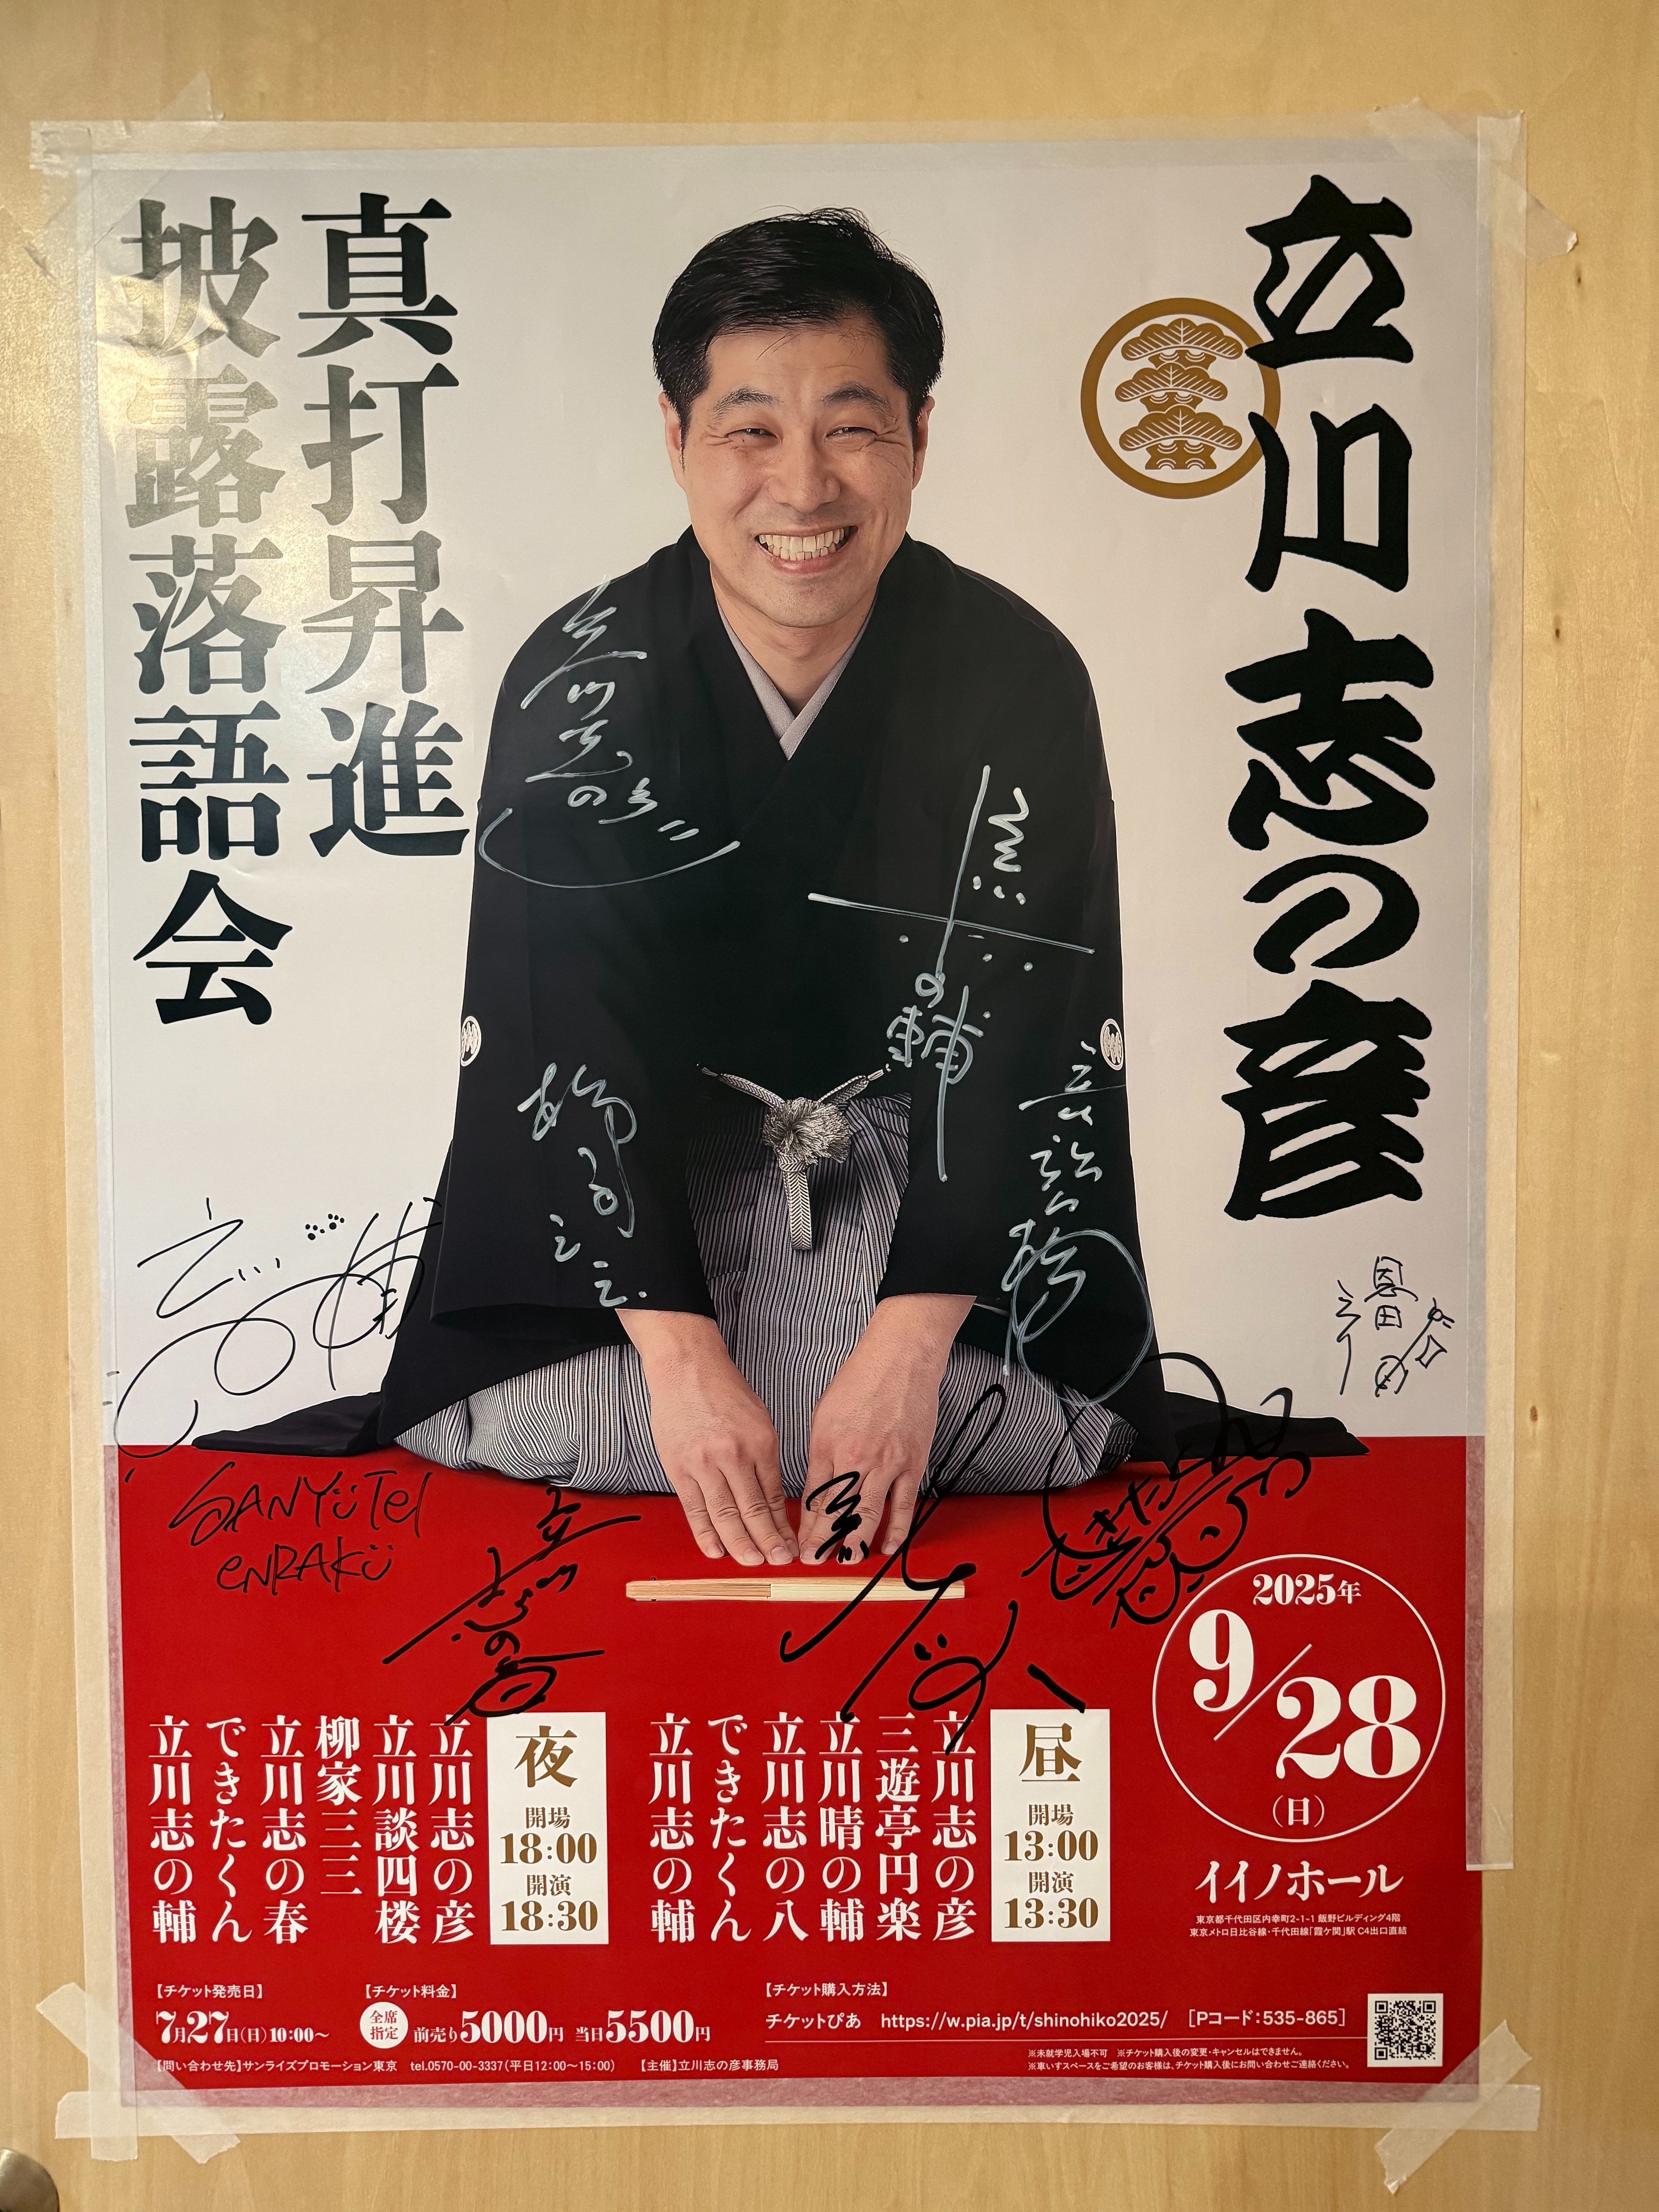 立川志の彦
真打昇進
披露落語会
立川志の彦
志の輔
SANYÜTEI
ENRAKÜ
恩田
2025年
9/28
(日)
イイノホール
東京都千代田区内幸町2-1-1 飯野ビルディング4階
東京メトロ日比谷線・千代田線「霞ケ関」駅 C4出口直結
昼
開場
13:00
開演
13:30
立川志の彦
三遊亭円楽
立川晴の輔
立川志の八
できたくん
立川志の輔
夜
開場
18:00
開演
18:30
立川志の彦
立川談四楼
柳家三三
立川志の春
できたくん
立川志の輔
【チケット発売日】
7月27日(日)10:00〜
【チケット料金】
全席
指定
前売り5000円 当日5500円
【チケット購入方法】
チケットぴあ https://w.pia.jp/t/shinohiko2025/ [Pコード:535-865]
※未就学児入場不可 ※チケット購入後の変更・キャンセルはできません。
※車いすスペースをご希望のお客様は、チケット購入後にお問い合わせご連絡ください。
【問い合わせ先】サンライズプロモーション東京 tel.0570-00-3337(平日12:00〜15:00) 【主催】立川志の彦事務局